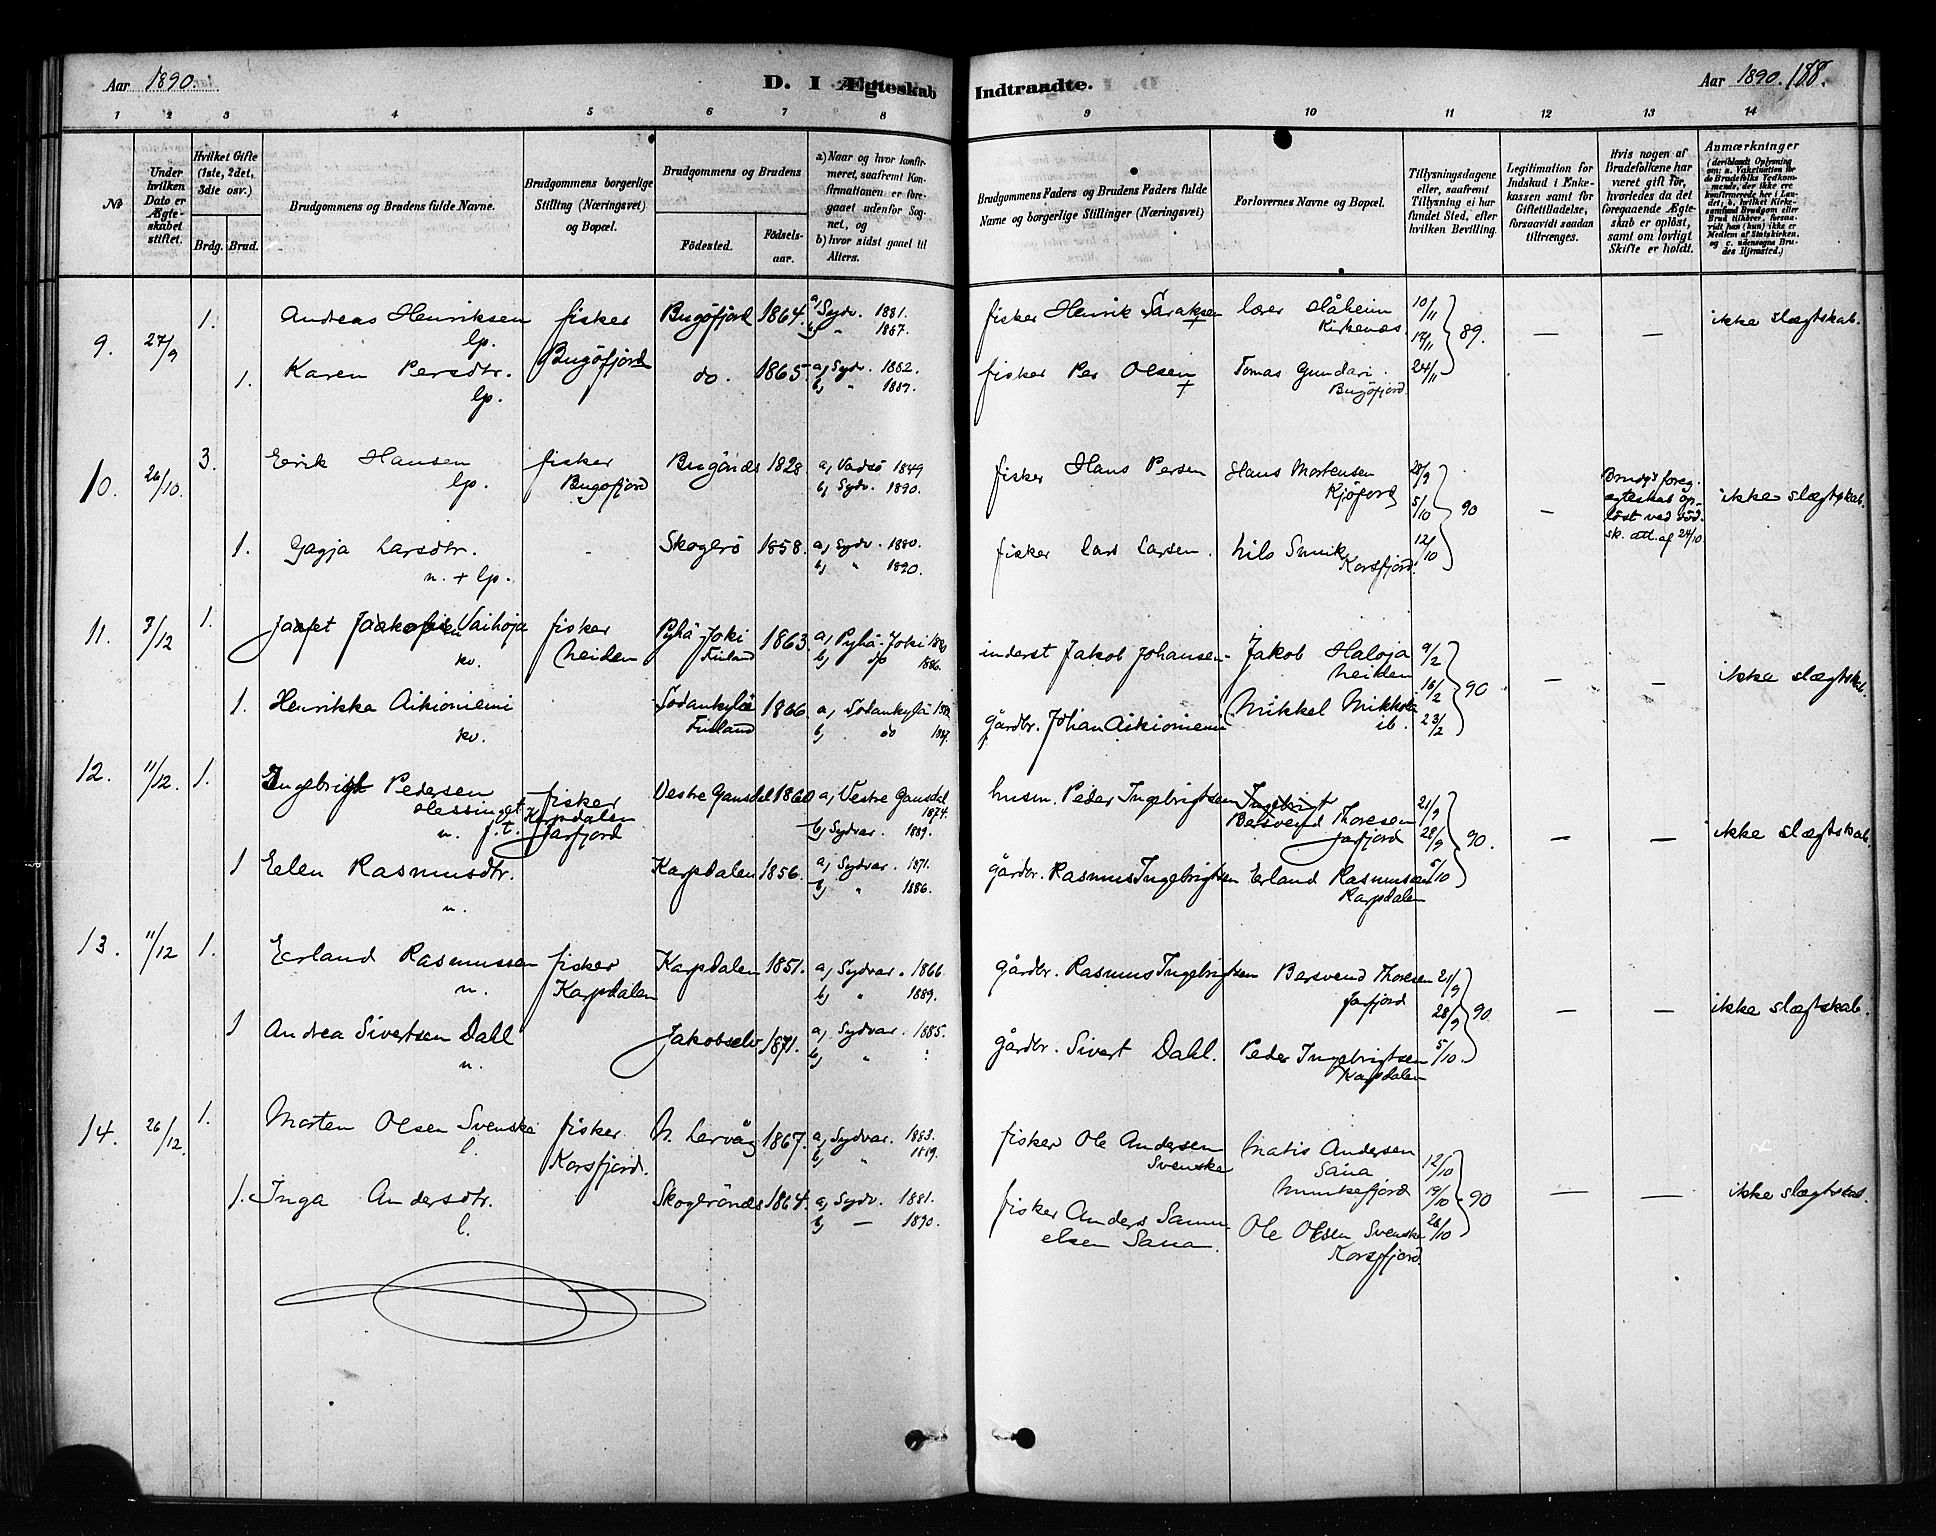 Aar 1890.
D. I Ægteskab Indtraadte.
Aar 1890. 188.
1 2 3 4 5 6 7 8 9 10 11 12 13 14
No
Under hvilken Dato er Ægteskabet stiftet.
Hvilket Gifte (1ste, 2det, 3die osv.)
Brdg. Brud.
Brudgommens og Brudens fulde Navne.
Brudgommens borgerlige Stilling (Næringsvei) og Bopæl.
Brudgommens og Brudens
Födested.
Födselsaar.
a) Naar og hvor konfirmeret, saafremt Konfirmationen er foregaaet udenfor Sognet, og
b) hvor sidst gaaet til Alters.
Brudgommens Faders og Brudens Faders fulde Navne og borgerlige Stillinger (Næringsvei)
Forlovernes Navne og Bopæl.
Tillysningsdagene eller, saafremt Tillysning ei har fundet Sted, efter hvilken Bevilling.
Legitimation for Indskud i Enkekassen samt for Giftetilladelse, forsaavidt saadan tiltrænges.
Hvis nogen af Brudefolkene har været gift før, hvorledes da det foregaaende Ægteskab er oplöst, samt om lovligt Skifte er holdt.
Anmærkninger (deriblandt Oplysning om: a. Vakstnation for de Brudefolks Vedkommende, der ikke ere konfirmerede her i Landet; b. hvilket Kirkesamfund Brudgom eller Brud tilhører, forsaavidt han (hun) ikke er Medlem af Statskirken, og c. udensogns Brudes Hjemsted.)
9. 27/9 1. Andreas Henriksen lp. fisker Bugöfjord Bugöfjord 1864. a, Sydv. 1881. b, " 1887. fisker Henrik Saraksen + lærer Slåheim Kirkenæs 10/11 17/11 24/11 89. — — ikke slægtskab.
1. Karen Persdtr. lp. do. 1865. a, Sydv. 1882. b, " 1889. fisker Per Olsen + Tomas Gundari Bugöfjord
10. 26/10. 3. Eerik Hansen lp. fisker Bugöfjord Bugönæs 1828. a, Vadsö 1849 b, Sydv. 1890. fisker Hans Persen Hans Mortensen Kjöfjord 28/9 5/10 12/10 90 — Brudg's foreg. ægteskab oplöst ved död sk. att. af 24/10. ikke slægtskab.
1. Gagja Larsdtr. n. + lp. - Skogerö 1858. a, Sydv. 1880. b, " 1890. fisker Lars Larsen. Nils Korsfjord.
11. 3/12 1. Jaafet Vaihoja kv. fisker Neiden Pyhä-Joki Finland 1863. a, Pyhä-Joki b, do 1886. inderst Jakob Johansen Jakob Haloja Neiden 9/2 16/2 23/2 90 — — ikke slægtskab.
1. Henrikka Aikioniemi kv. Sodankylä Finland 1866. a, Sodankylä b, do 1887. gårdbr. Johan Aikioniemi Mikkel Mikkola ib.
12. 11/12. 1. Engebrigt Pedersen n. f.t. fisker Karpdalen Jarfjord Vestre Gausdal 1860 a, Vestre Gausdal 1874. b, Sydvar. 1889. husm. Peder Ingebrigtsen Ingebrigt Bersvend Thoresen Jarfjord 21/9 28/9 5/10 90. — — ikke slægtskab.
1 Eelen Rasmusdtr. n. Karpdalen 1856. a, Sydvar. 1871. b, " 1886. gårdbr. Rasmus Ingebrigtsen Erland Rasmussen Karpdalen
13. 11/12 1. Erland Rasmussen n. fisker Karpdalen Karpdalen 1851. a, Sydvar. 1866 b, " 1889. gårdbr. Rasmus Ingebrigtsen Bersvend Thoresen Jarfjord 21/9 28/9 5/10. 90 — — ikke slægtskab.
1 Andrea Sivertsen Dahl n. Jakobselv 1871. a, Sydvar. 1885. b, " gårdbr. Sivert Dahl. Peder Ingebrigtsen Karpdalen
14. 26/12. 1. Morten Olsen Svenske l. fisker Korsfjord. N. Lervåg 1867. a, Sydvar. 1883. b, " 1889. fisker Ole Andersen Svenske Matis Andersen Sana Munkefjord 12/10 19/10 26/10 90 — — ikke slægtskab.
1. Inga Andersdtr. l. Skogerönæs 1864. a, Sydv. 1881. b, — 1890. fisker Anders Samuelsen Sana. Ole Olsen Svenske Korsfjord.